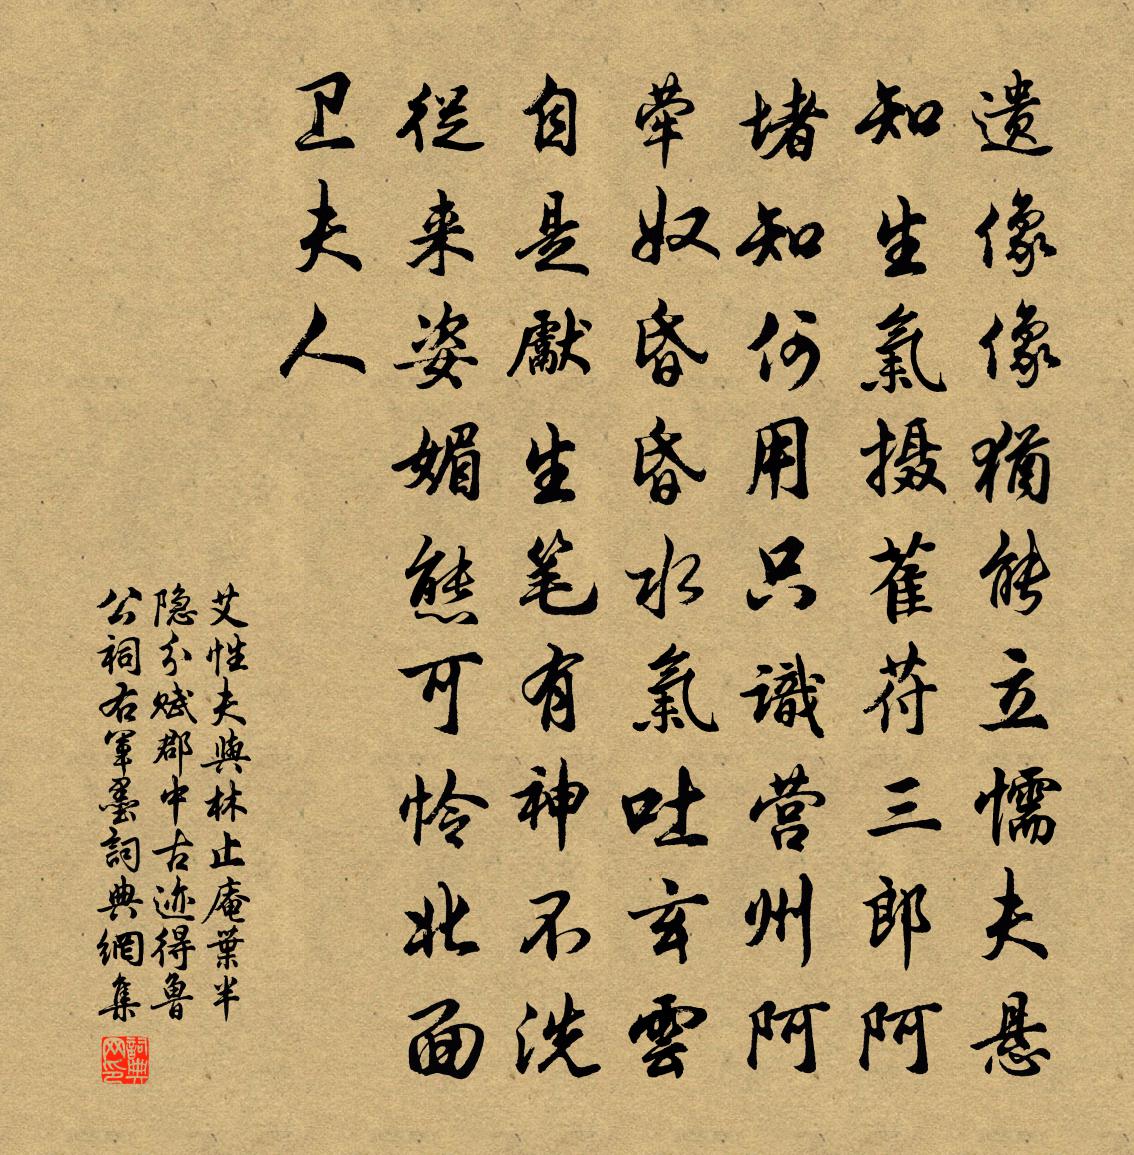 遗像像猶能立懦夫悬
知生氣摄萑苻三郎阿
堵知何用只識营州阿
荦奴昏昏水氣吐玄雲
自是獻生笔有神不洗
從来姿媚熊可怜北面
卫夫人
艾性夫與林止庵葉半
隐分赋郡中古迹得魯
公祠右軍墨詞典網集
詞典网印